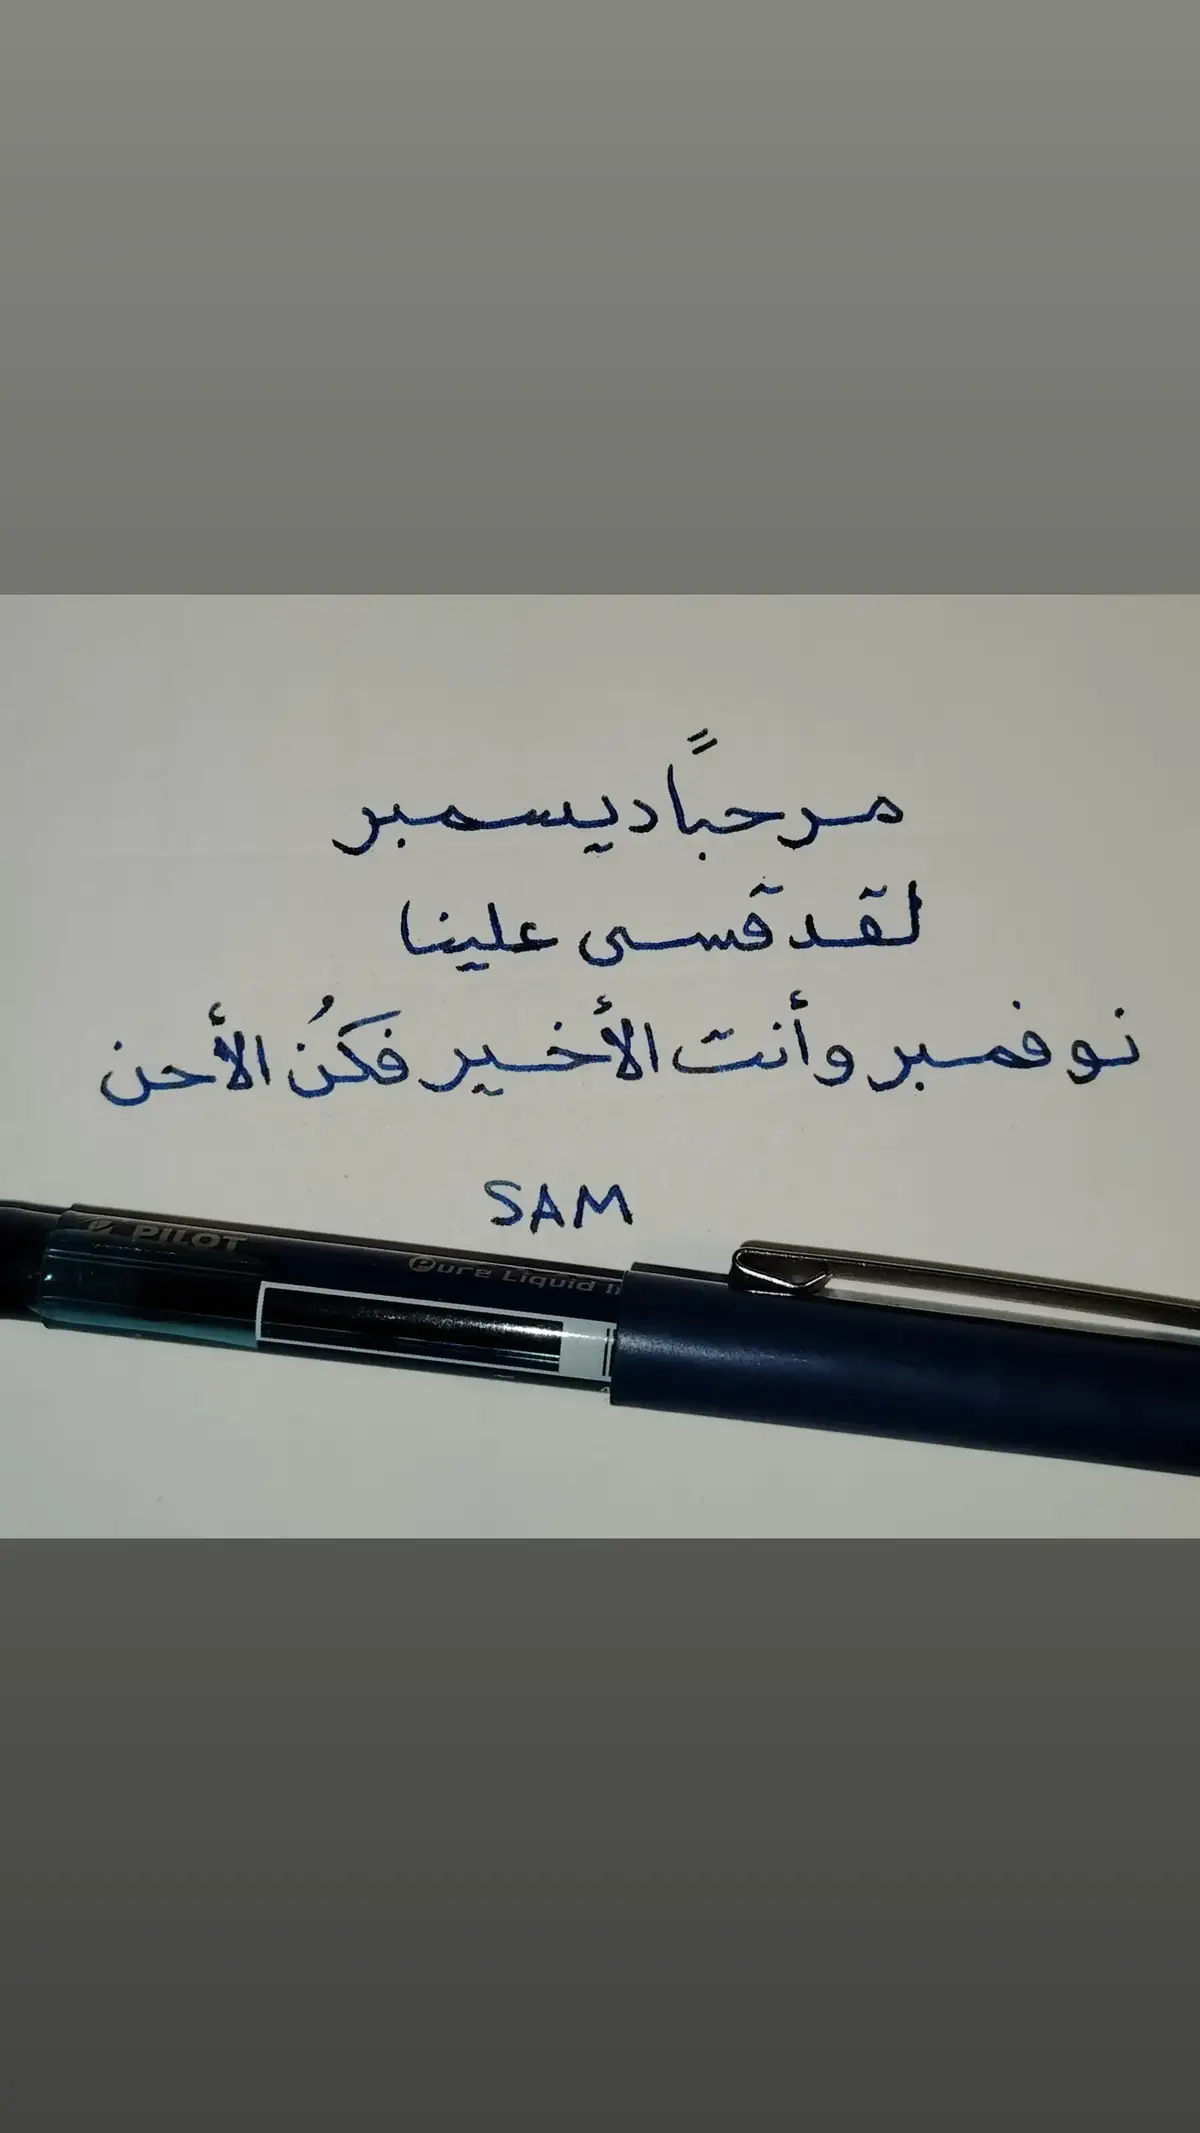 مرحباً ديسمبر
لقد قسى علينا
نوفمبر وأنت الأخير فكُن الأحن
SAM
PILOT
Pure Liquid